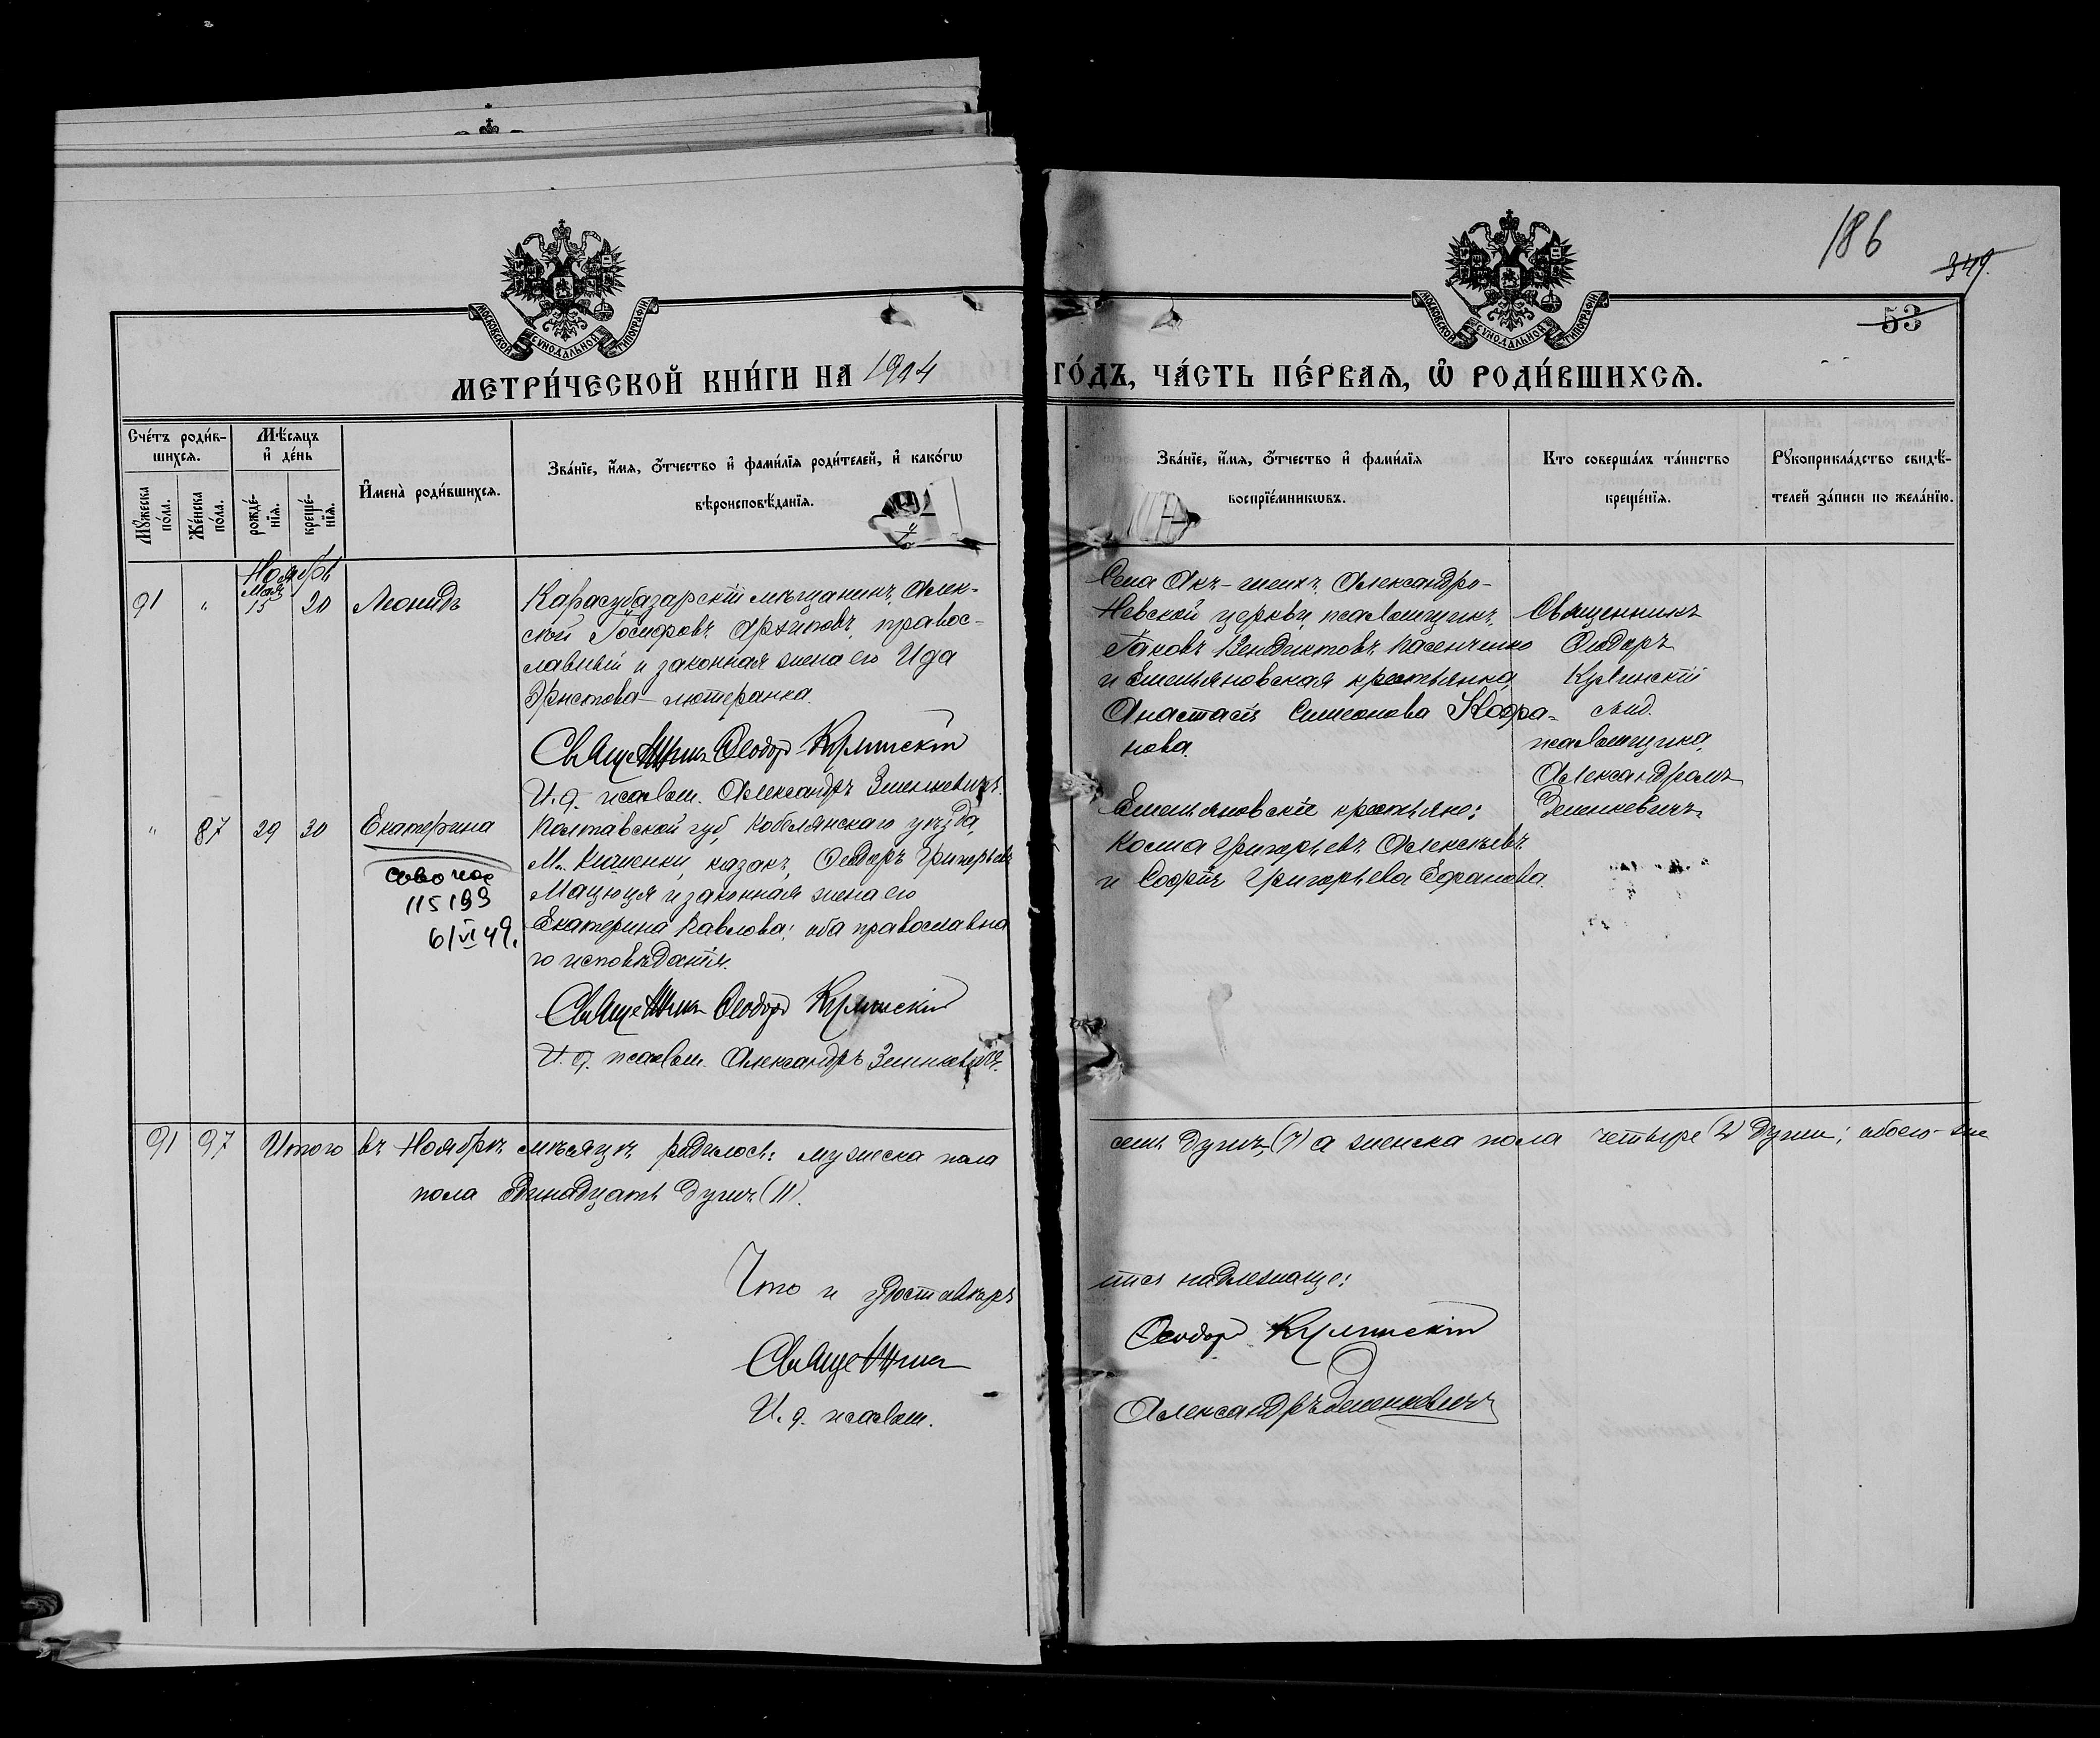 186
349.
53
МОСКОВСКОЙ СУНОДАЛЬНОЙ ТИПОГРАФІИ
МОСКОВСКОЙ СУНОДАЛЬНОЙ ТИПОГРАФІИ
МЕТРИ́ЧЕСКОЙ КНИ́ГИ НА 1914 ГО́ДЪ, ЧА́СТЬ ПЕ́РВАѦ, Ѡ҆ РОДИ́ВШИХСѦ.
Сче́тъ роди́в-
шихсѧ.
Мѣ́сѧцъ
и҆ де́нь
Мꙋ́жеска
по́ла.
Же́нска
по́ла.
рожде́-
нїѧ.
креще́-
нїѧ.
И҆мена̀ роди́вшихсѧ.
Зва́нїе, и҆́мѧ, ѻ҆́тчество и҆ фами́лїѧ роди́телей, и҆ како́гѡ
вѣроисповѣ́данїѧ.
Зва́нїе, и҆́мѧ, ѻ҆́тчество и҆ фами́лїѧ
воспрїе́мникѡвъ.
Кто соверша́лъ та́инство
креще́нїѧ.
Рꙋкоприкла́дство свидѣ́-
телей за́писи по жела́нїю.
Ноябрь
Мая
91 " 15 20 Леонидъ
Карасубазарскій мѣщанинъ, Алек-
сѣй Іосифовъ Архиповъ, правос-
лавный и законная жена его Ида
Эрнстова лютеранка.
Священникъ Ѳеодоръ
И. д. псалом. Александръ Зенькевичъ.
Села Акъ-шеихъ, Александро-
Невской церкви, псаломщикъ,
Іаковъ Венедиктовъ Пасенченко
и Емельяновская крестьянка,
Анастасія Симеонова
нова.
Священникъ
Ѳеодоръ
псаломщика,
Александромъ
" 87 29 30 Екатерина
115199
6/VI 49.
Полтавской губ, Кобелянскаго уѣзда,
М. Кишенки, казакъ, Ѳеодоръ Григорьевъ
Мацюця и законная жена его
Екатерина Павлова; оба православна
го исповѣданія.
Священникъ Ѳеодоръ
И. д. псалом. Александръ Зенькевичъ.
Емельяновскіе крестьяне:
Косма Григорьевъ Алексѣевъ
и Софія Григорьева Ефанова.
91 97 Итого въ Ноябрѣ мѣсяцѣ родилось: мужеска пола семь душъ (7) а женска пола четыре (4) души; обоего же
пола одинадцать душъ (11).
Что и удостовѣря ется надлежаще:
Священникъ Ѳеодоръ
И. д. псалом. Александръ Зенькевичъ